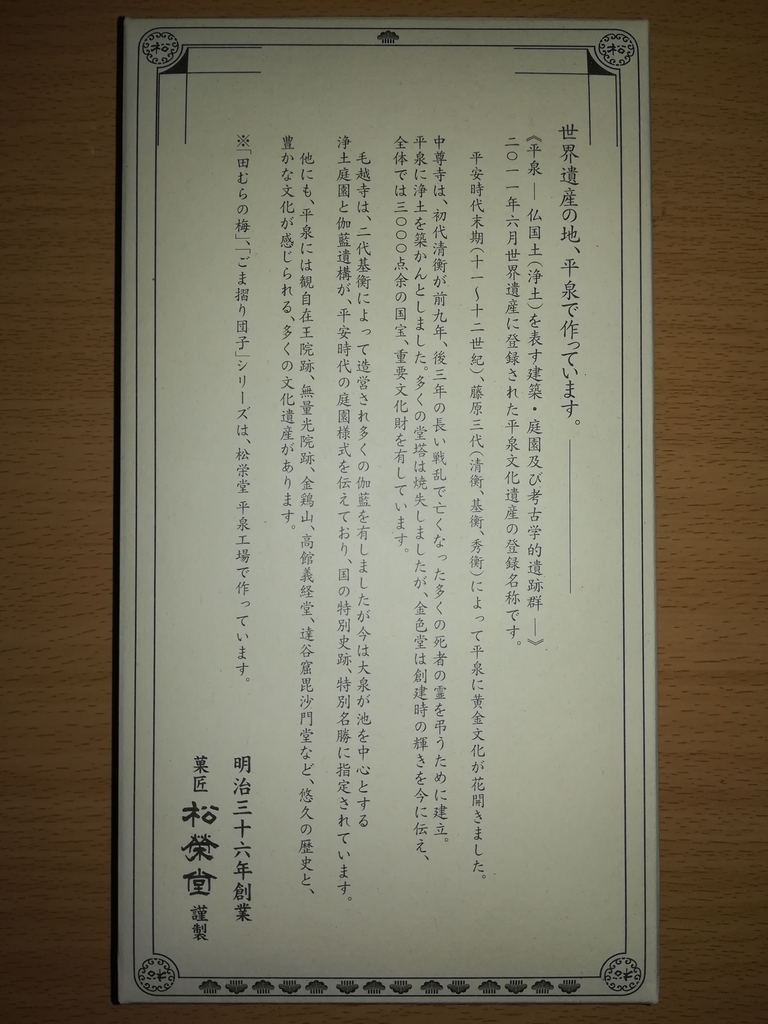 世界遺産の地、平泉で作っています。
《平泉 ― 仏国土(浄土)を表す建築・庭園及び考古学的遺跡群 ―》
二〇一一年六月世界遺産に登録された平泉文化遺産の登録名称です。
平安時代末期(十一〜十二世紀)、藤原三代(清衡、基衡、秀衡)によって平泉に黄金文化が花開きました。
中尊寺は、初代清衡が前九年、後三年の長い戦乱で亡くなった多くの死者の霊を弔うために建立。
平泉に浄土を築かんとしました。多くの堂塔は焼失しましたが、金色堂は創建時の輝きを今に伝え、
全体では三〇〇〇点余の国宝、重要文化財を有しています。
毛越寺は、二代基衡によって造営され多くの伽藍を有しましたが今は大泉が池を中心とする
浄土庭園と伽藍遺構が、平安時代の庭園様式を伝えており、国の特別史跡、特別名勝に指定されています。
他にも、平泉には観自在王院跡、無量光院跡、金鶏山、高館義経堂、達谷窟毘沙門堂など、悠久の歴史と、
豊かな文化が感じられる、多くの文化遺産があります。
※「田むらの梅」、「ごま摺り団子」シリーズは、松栄堂 平泉工場で作っています。
明治三十六年創業
菓匠 松榮堂 謹製
松
松
松
松